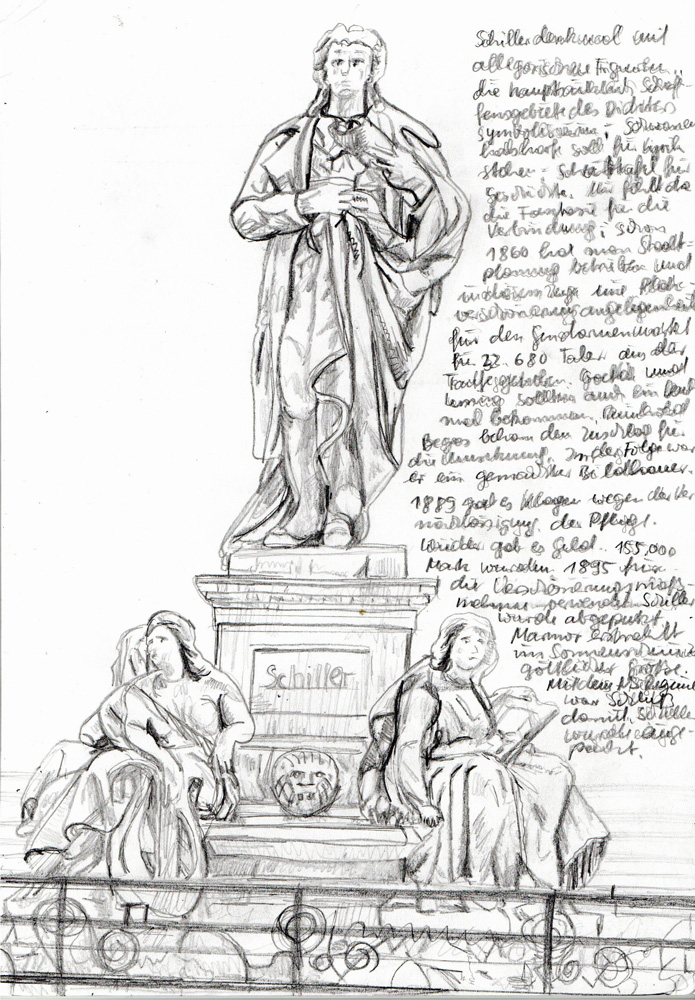 Schillerdenkmal mit
allegorischen Figuren ..
die hauptsächlich Schaf-
fensgebiete des Dichters
symbolisieren; Schwanen
halsharfe soll für Lyrik
stehen - Schreibtafel für
Geschichte. Mir fehlt da
die Fantasie für die
Verbindung; schon
1860 hat man Stadt-
planung betrieben und
eine Platz-
verschönerung angelegenheit
für den Gendarmenmarkt
für 22.680 Taler aus der
Taufe gehoben. Goethe und
Lessing sollten auch ein Denk
mal bekommen. Reinhold
Begas bekam den Zuschlag für
die Umsetzung. In der Folge war
er ein gemachter Bildhauer.
1889 gab es Klagen wegen der Ver
nachlässigung der Pflege.
Wieder gab es Geld.. 155,000
Mark wurden 1895 für
die Verschönerungsmaß-
nahmen verwendet. Schiller
wurde abgeputzt.
Marmor erstrahlt
im Sonnenschein in
göttlicher Größe.
Mit dem
war Schluß
damit. Schiller
wurde einge-
packt.
Schiller